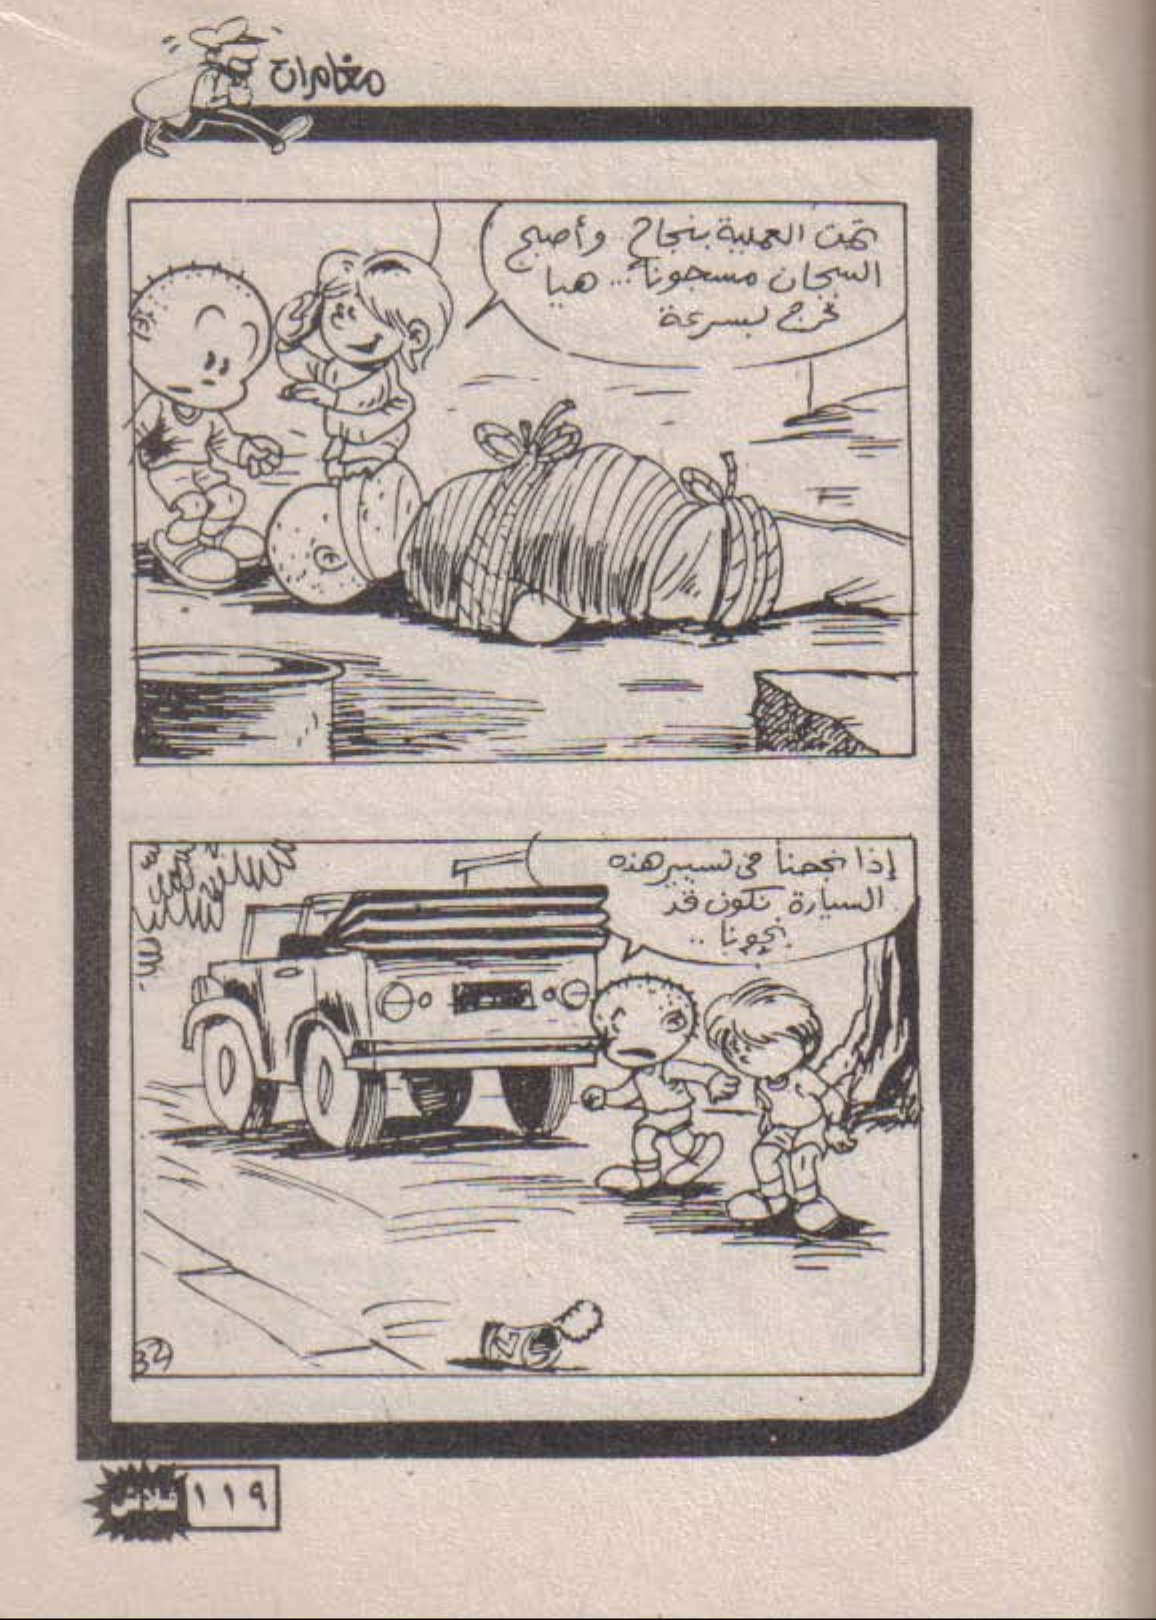 مغامرات
تمت العملية بنجاح وأصبح
السجان مسجونا... هيا
نخرج بسرعة
إذا نجحنا في تسيير هذه
السيارة نكون قد
نجونا..
32
فلاش ١١٩